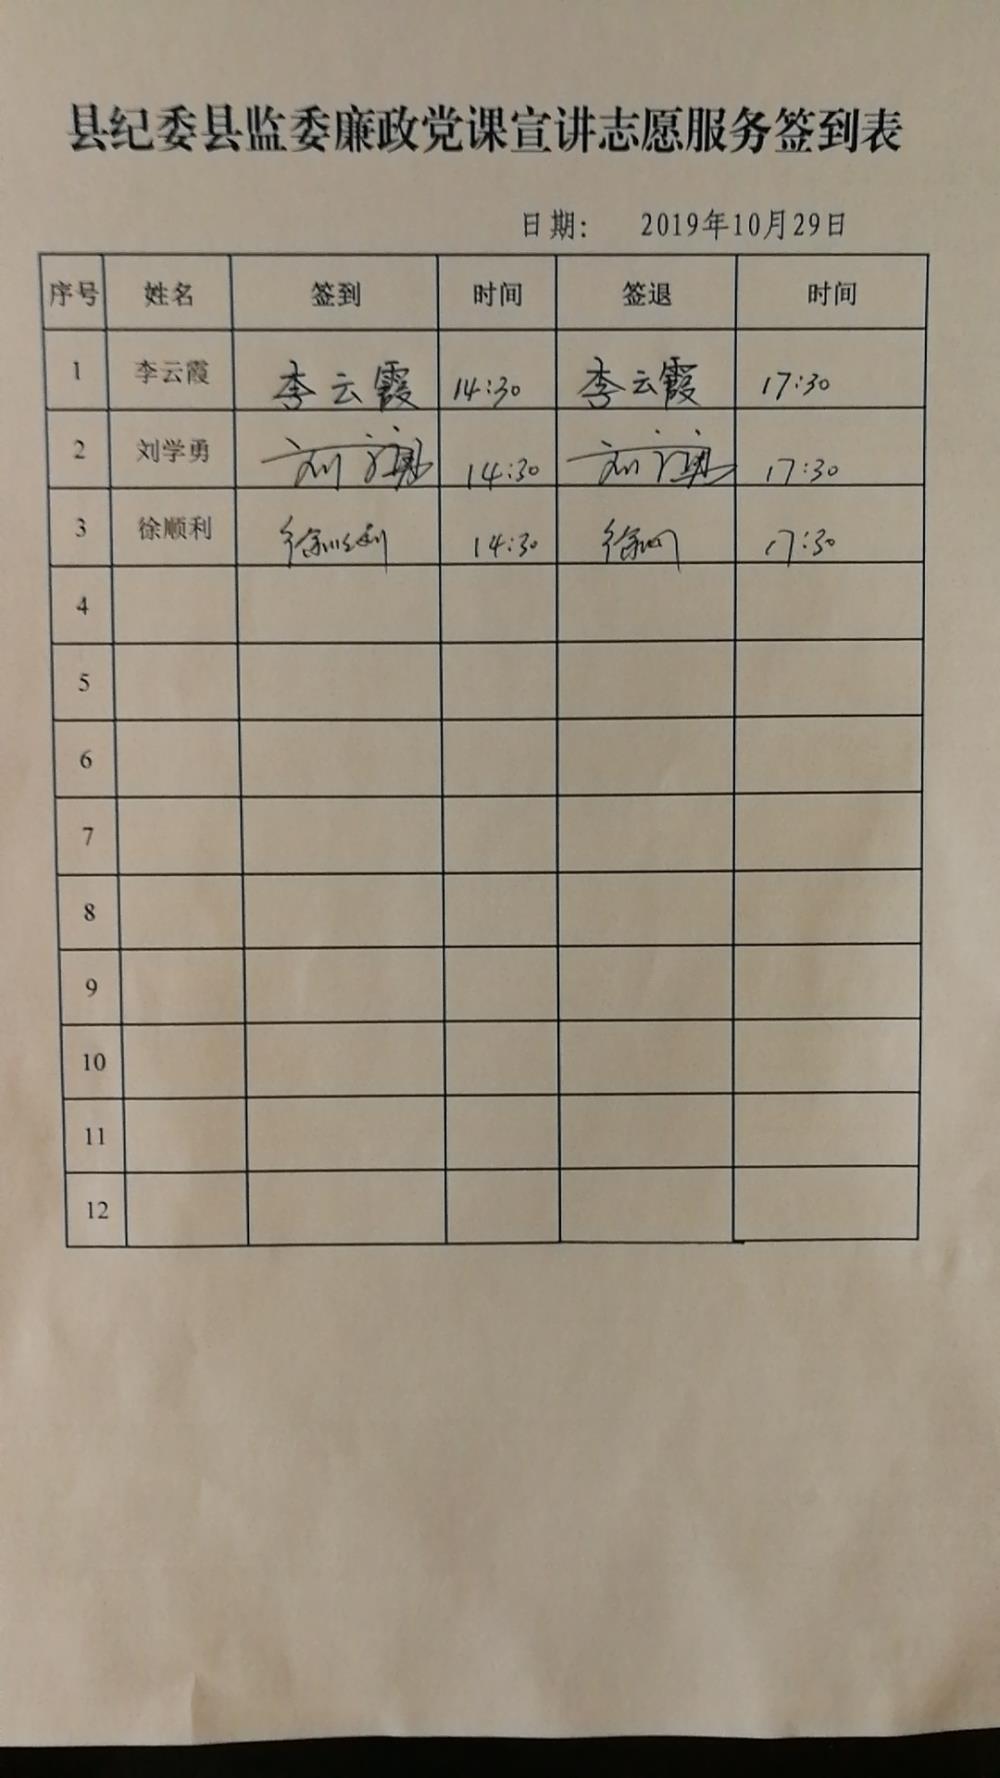 县纪委县监委廉政党课宣讲志愿服务签到表
日期： 2019年10月29日
序号 姓名 签到 时间 签退 时间
1 李云霞 李云霞 14:30 李云霞 17:30
2 刘学勇 刘学勇 14:30 刘学勇 17:30
3 徐顺利 徐顺利 14:30 徐顺利 17:30
4
5
6
7
8
9
10
11
12